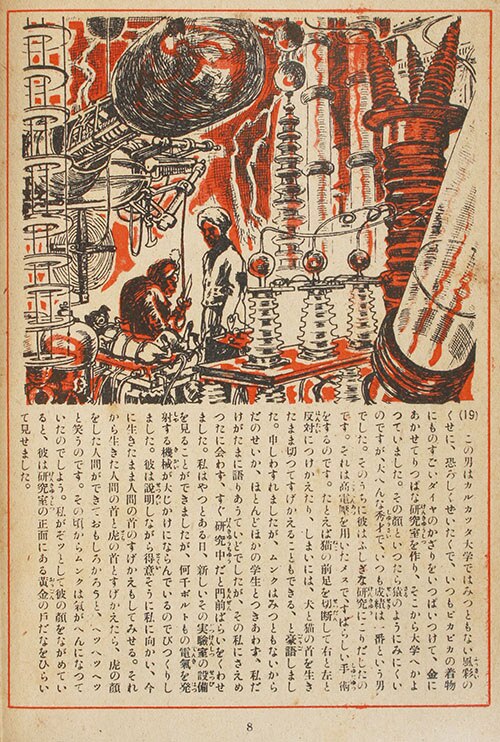 (19) この男はカルカッタ大学ではみつともない風彩の
くせに、恐ろしくぜいたくで、いつもピカピカの着物
にものすごいダイヤのかざりをいっぱいつけて、金に
あかせてりつぱな研究室を作り、そこから大学へかよ
つていました。その顔といつたら猿のようにみにくい
のですが、大へんな秀才で、いつも成績は一番という男
でした。そのうちに彼はふしぎな研究にこりだしたの
です。それは高電壓を用いたメスで、すばらしい手術
をするのです。たとえば猫の前足を切断して右と左と
反対につけかえたり、しまいには、犬と猫の首を生き
たまま切つてすげかえることもできる、と豪語しまし
た。申しわすれましたが、ムンクはみつともないから
だのせいか、ほとんどほかの学生とつきあわず、私だ
けがたまに語りあつていたのでしたが、その私にさえめ
つたに会わず、すぐ研究中だと門前ばらいをくわせ
ました。私はやつとある日、新しいその実験室の設備
を見ることができましたが、何千ボルトもの電氣を発
射する機械が大じかけにならんでいるのでびつくりし
ました。彼は説明しながら得意そうに私に向かい、今
に生きたまま人間の首のすげかえもしてみせる。それ
から生きた人間の首と虎の首とすげかえたら、虎の顔
をした人間ができておもしろかろうと、ヘッヘッヘッ
と笑うのです。その頃からムンクは氣がへんになつて
いたのでしよう。私がぞッとして彼の顔をながめてい
ると、彼は研究室の正面にある黄金の戶だなをひらい
て見せました。
8